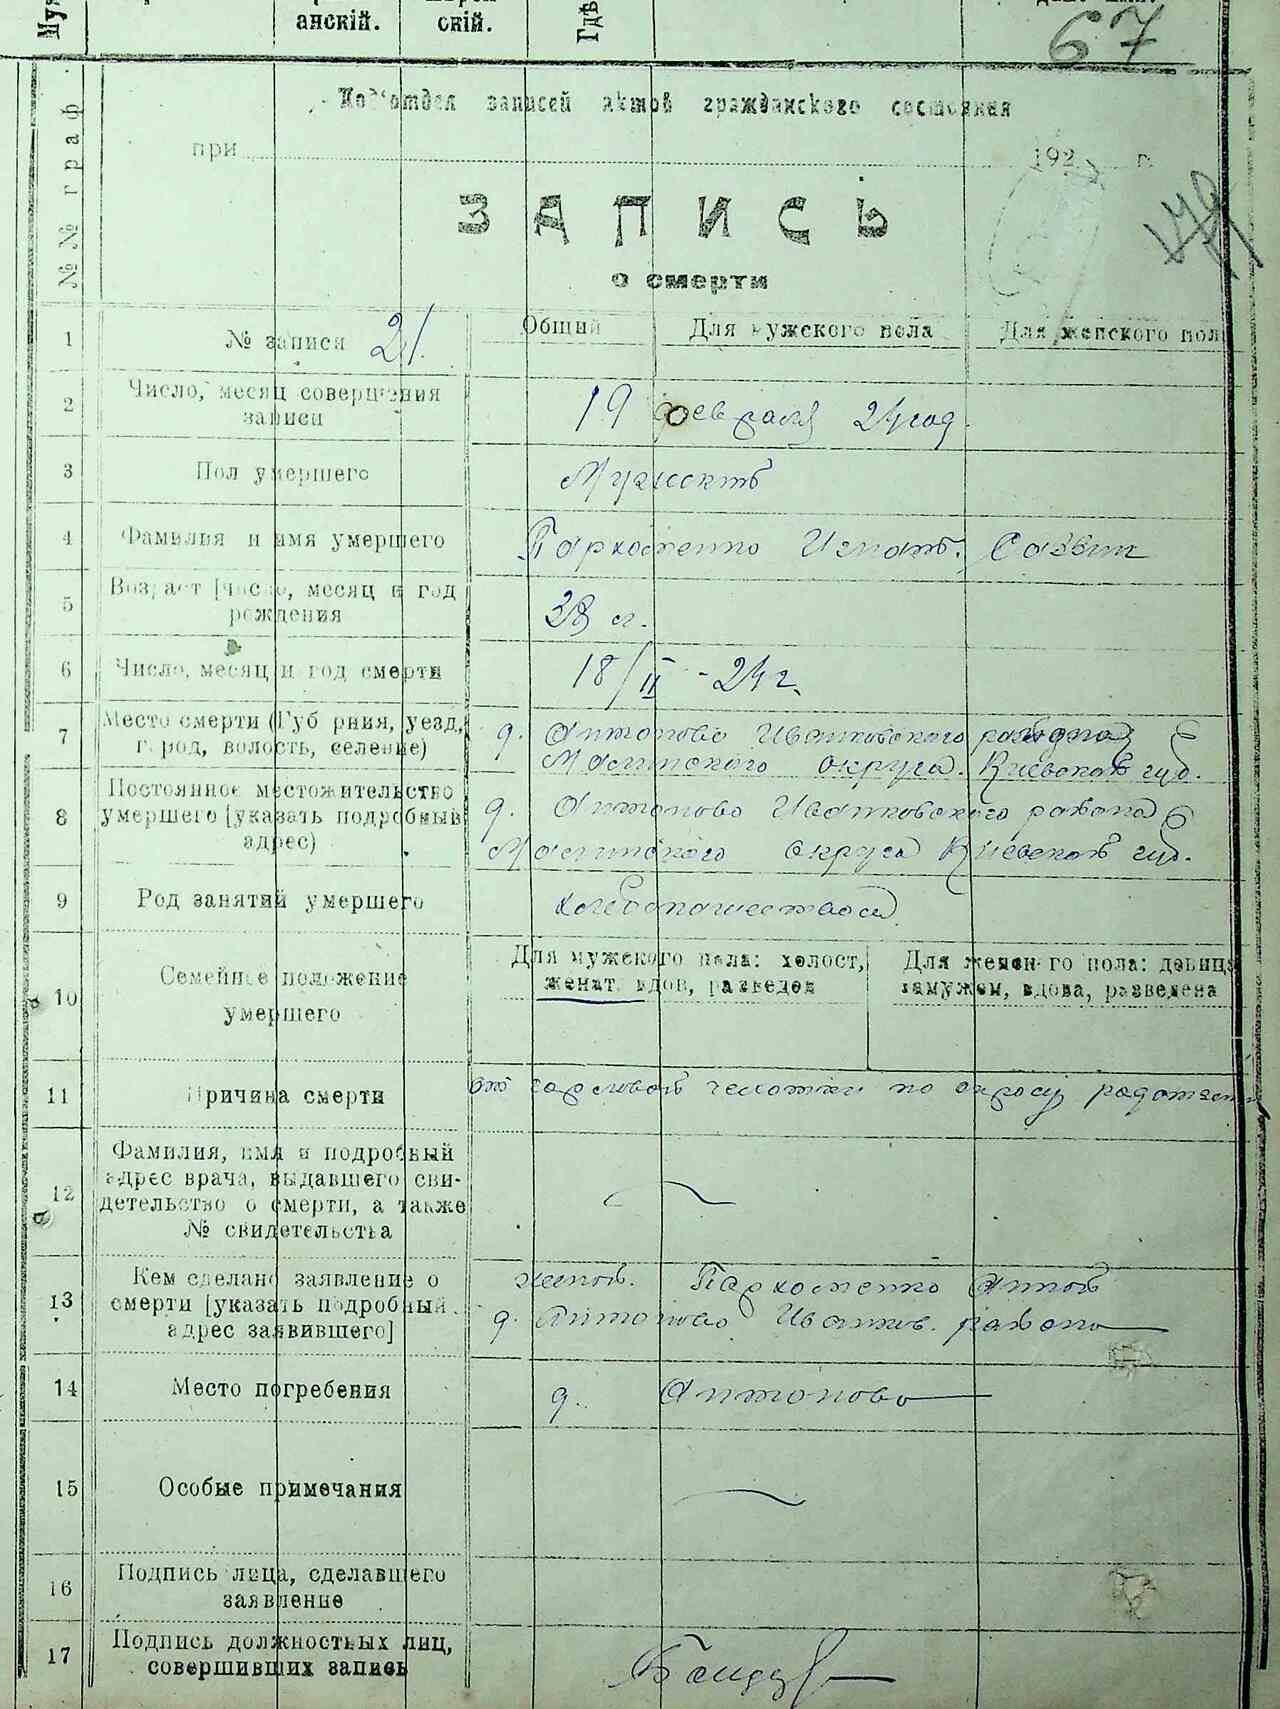 анскій.
скій.
Гдѣ
67
Под'отдел записей актов гражданского состояния
при 192 г.
№№ граф
ЗАПИСЬ
о смерти
Общий Для мужского пола Для женского пола
1 № записи 21.
2 Число, месяц совершения
записи
19 февраля 24 год.
3 Пол умершего
Мужской
4 Фамилия и имя умершего
Пархоменко Игнат. Саввин
5 Возраст [число, месяц и год
рождения
38 л.
6 Число, месяц и год смерти
18/II - 24 г.
7 Место смерти (Губерния, уезд,
город, волость, селение)
д. Антоново Иванковского района
Малинского округа. Киевской губ.
8 Постоянное местожительство
умершего [указать подробный
адрес)
д. Антоново Иванковского района
Малинского округа Киевской губ.
9 Род занятий умершего
хлебопашество
10 Семейное положение
умершего
Для мужского пола: холост,
женат, вдов, разведен
Для женского пола: девица
замужем, вдова, разведена
11 Причина смерти
от горловой чахотки по опросу
12 Фамилия, имя и подробный
адрес врача, выдавшего сви-
детельство о смерти, а также
№ свидетельства
13 Кем сделано заявление о
смерти [указать подробный
адрес заявившего]
женой. Пархоменко
д. Антоново Иванков. района
14 Место погребения
д. Антоново
15 Особые примечания
16 Подпись лица, сделавшего
заявление
17 Подпись должностных лиц,
совершивших запись